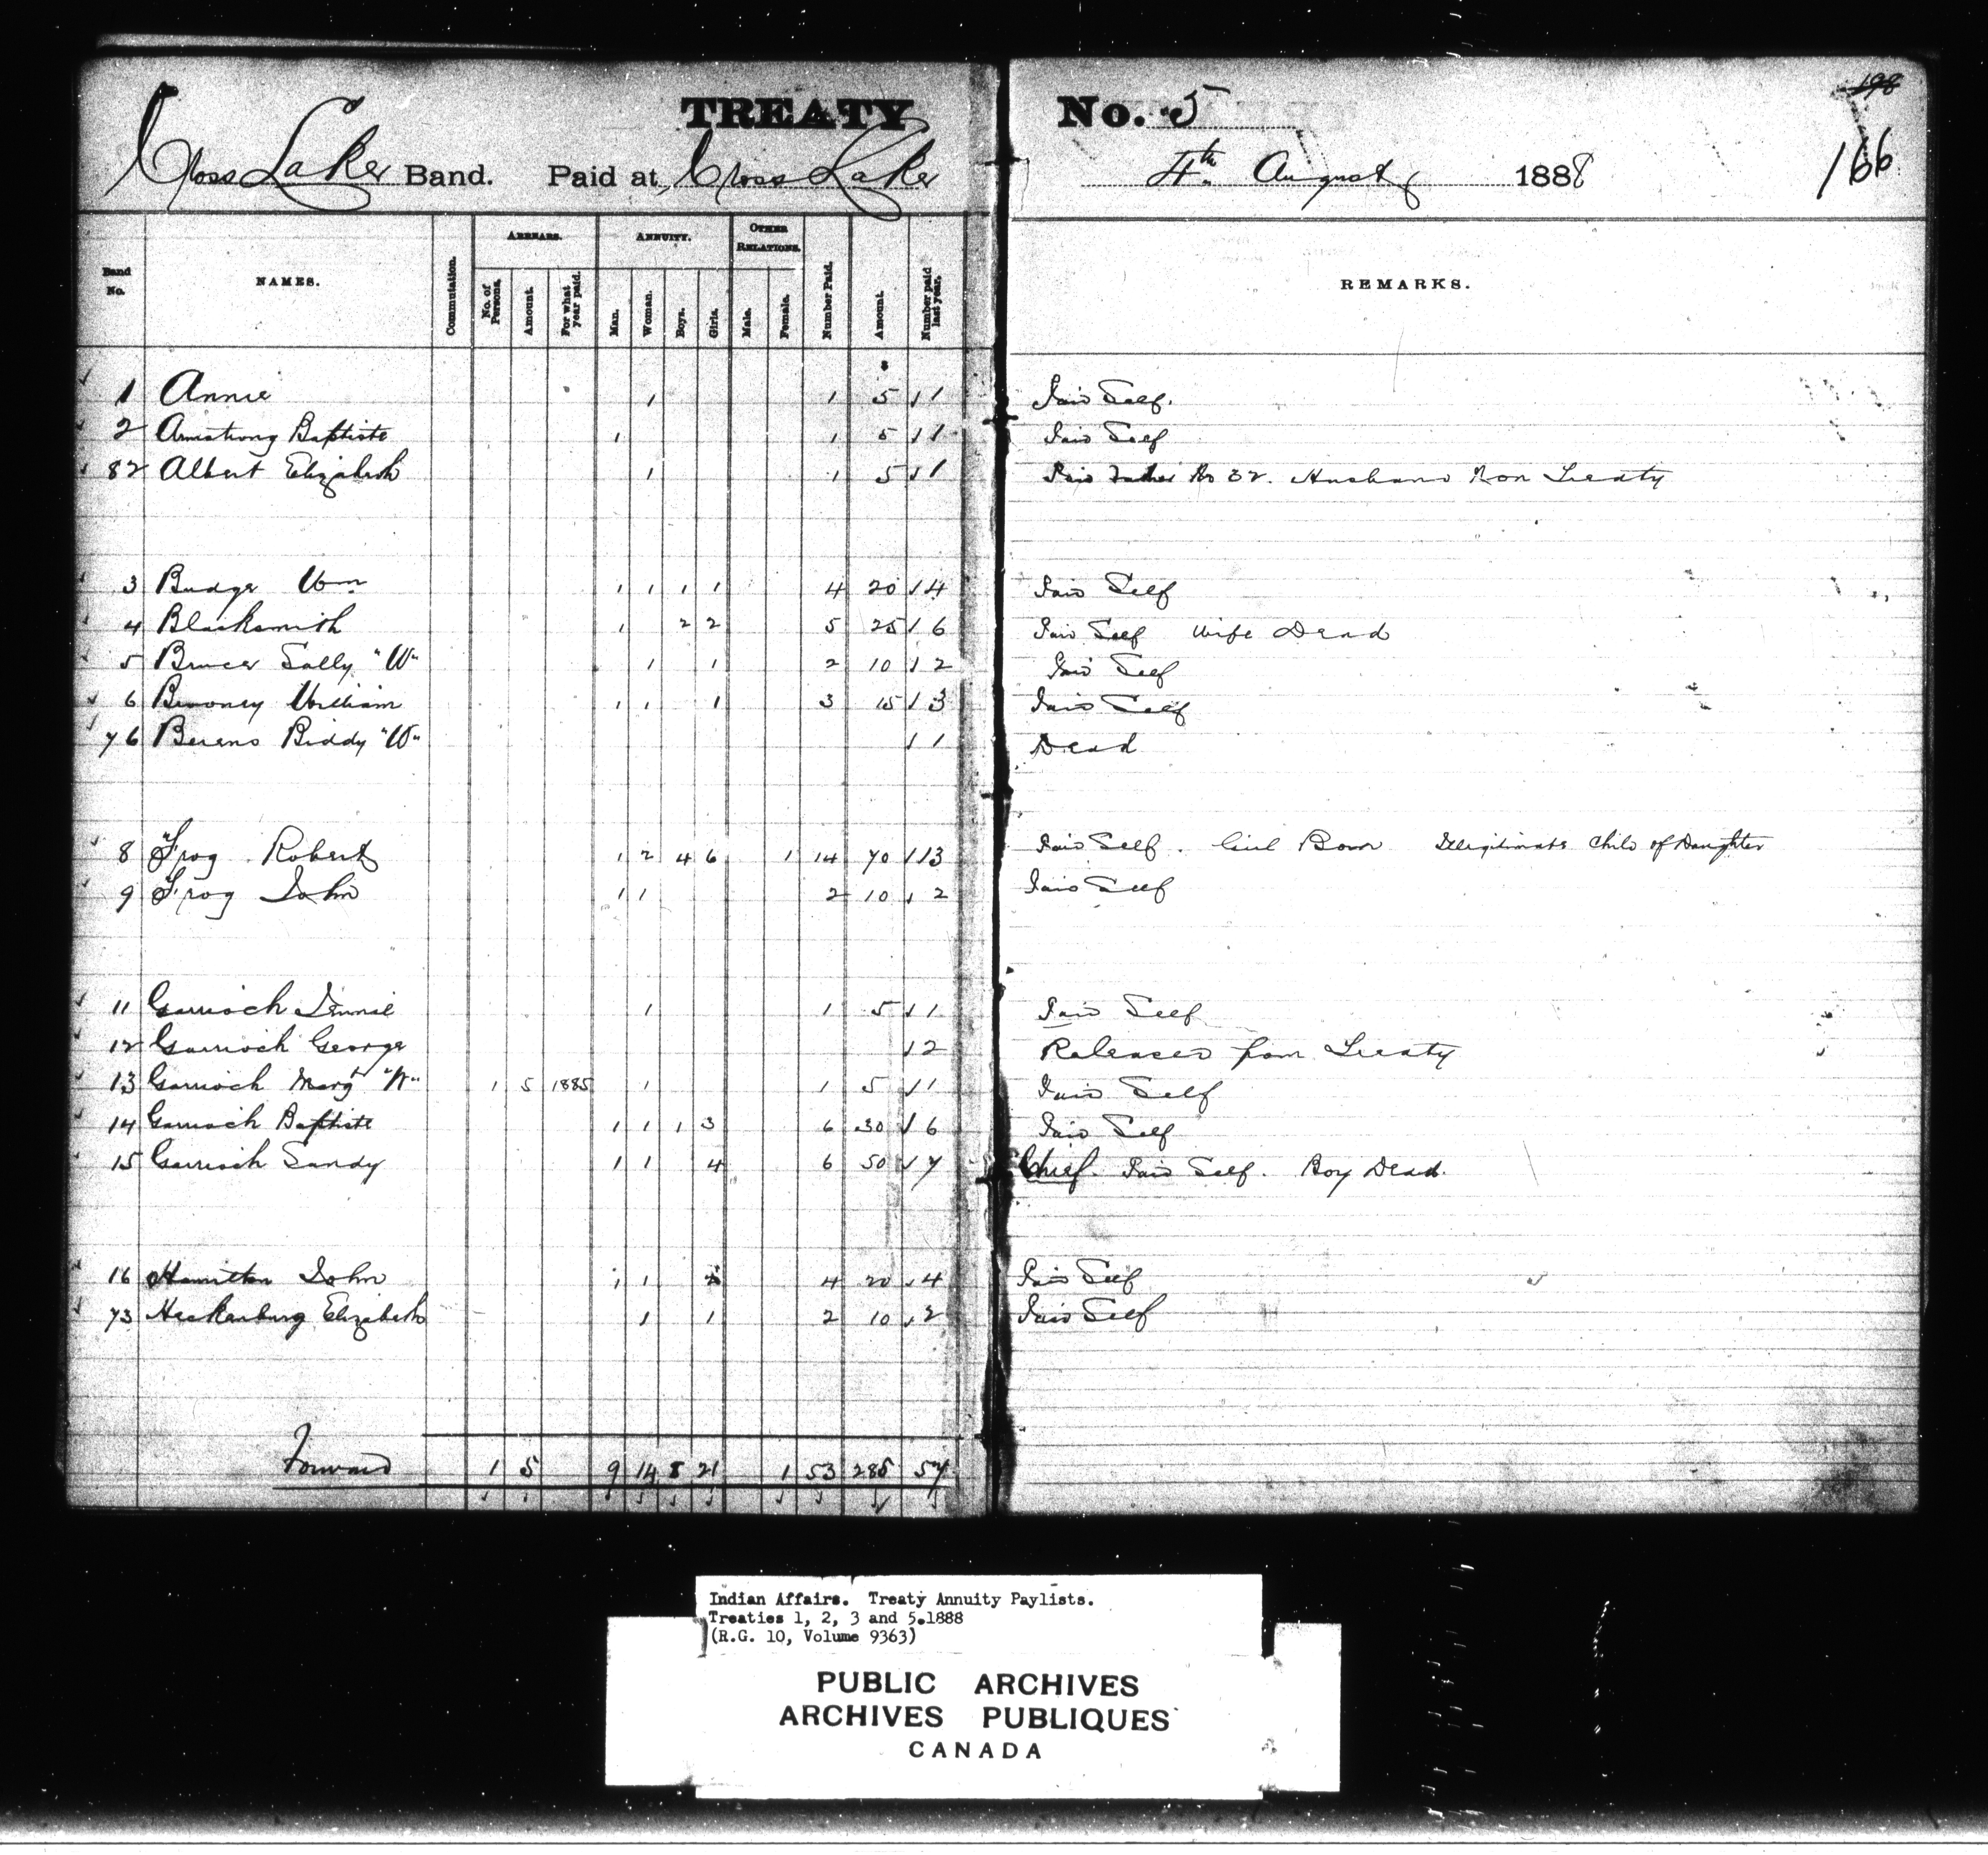 TREATY No. 5
198
Cross Lake Band. Paid at Cross Lake 4th August 1888
166
Band No. NAMES. Commutation. ARREARS. No. of Persons. Amount. For what year paid. ANNUITY. Man. Woman. Boys. Girls. OTHER RELATIONS. Male. Female. Number Paid. Amount. Number paid last year. REMARKS.
1 Annie 1 1 5 1 Paid Self.
2 Armstrong Baptiste 1 1 5 1 Paid Self
82 Albert Elizabeth 1 1 5 1 Paid Father No 32. Husband Non Treaty
3 Budge Wm 1 1 1 1 4 20 4 Paid Self
4 Blacksmith 1 2 2 5 25 6 Paid Self Wife Dead
5 Bruce Sally "W" 1 1 2 10 2 Paid Self
6 William 1 1 1 3 15 3 Paid Self
76 Berens Biddy "W" 1 Dead
8 Frog Robert 1 2 4 6 1 14 70 13 Paid Self. Girl Born Illegitimate Child of Daughter
9 Frog John 1 1 2 10 2 Paid Self
11 Garrioch Jennie 1 1 5 1 Paid Self
12 Garrioch George 2 Released from Treaty
13 Garrioch Margt "W" 1 5 1885 1 1 5 1 Paid Self
14 Garrioch Baptiste 1 1 1 3 6 30 6 Paid Self
15 Garrioch Sandy 1 1 4 6 50 7 Chief. Paid Self. Boy Dead.
16 Hamilton John 1 1 2 4 20 4 Paid Self
73 Heckenburg Elizabeth 1 1 2 10 2 Paid Self
Forward 1 5 9 14 8 21 1 53 285 57
Indian Affairs. Treaty Annuity Paylists.
Treaties 1, 2, 3 and 5.1888
(R.G. 10, Volume 9363)
PUBLIC ARCHIVES
ARCHIVES PUBLIQUES
CANADA